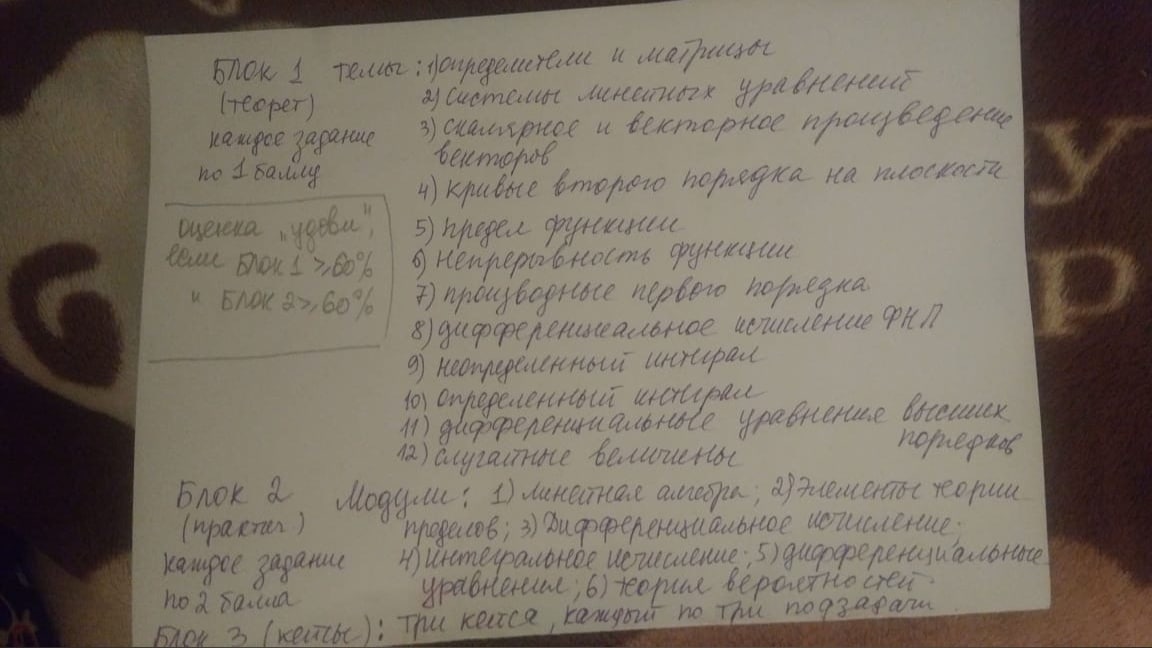 Блок 1 темы: 1) определители и матрицы
(теорет) 2) системы линейных уравнений
каждое задание 3) скалярное и векторное произведение
по 1 баллу векторов
4) кривые второго порядка на плоскости
оценка „удовл",
если Блок 1 ⩾ 60%
" Блок 2 ⩾ 60%
5) предел функции
6) непрерывность функции
7) производные первого порядка
8) дифференциальное исчисление ФНП
9) неопределенный интеграл
10) определенный интеграл
11) дифференциальные уравнения высших
порядков
12) случайные величины
Блок 2 Модули: 1) линейная алгебра; 2) Элементы теории
(практич) пределов; 3) Дифференциальное исчисление;
каждое задание 4) интегральное исчисление; 5) дифференциальные
по 2 балла уравнения; 6) теория вероятностей
Блок 3 (кейсы): три кейса, каждый по три подзадачи.